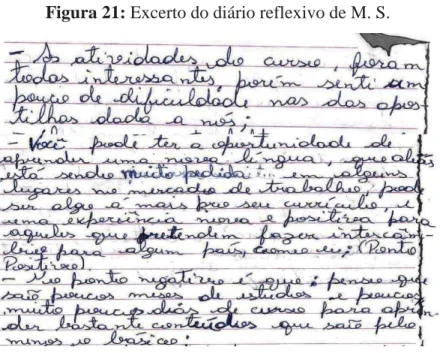 Figura 21: Excerto do diário reflexivo de M. S.
- As atividades do curso, foram
todas interessantes, porém senti um
pouco de dificuldade nas das apos-
tilhas dada a nós;
- Você pode ter a oportunidade de
aprender uma nova língua, que aliás
está sendo muito pedida em alguns
lugares no mercado de trabalho, pode
ser algo a mais pro seu currículo e
uma experiência nova e positiva para
aqueles que pretendem fazer intercâm-
bio para algum país, como eu; (Ponto
Positivo).
- No ponto negativo é que; penso que
são poucos meses de estudos e poucos,
muito poucos dias de curso para apren-
der bastante conteúdos que são pelo
menos o básico;